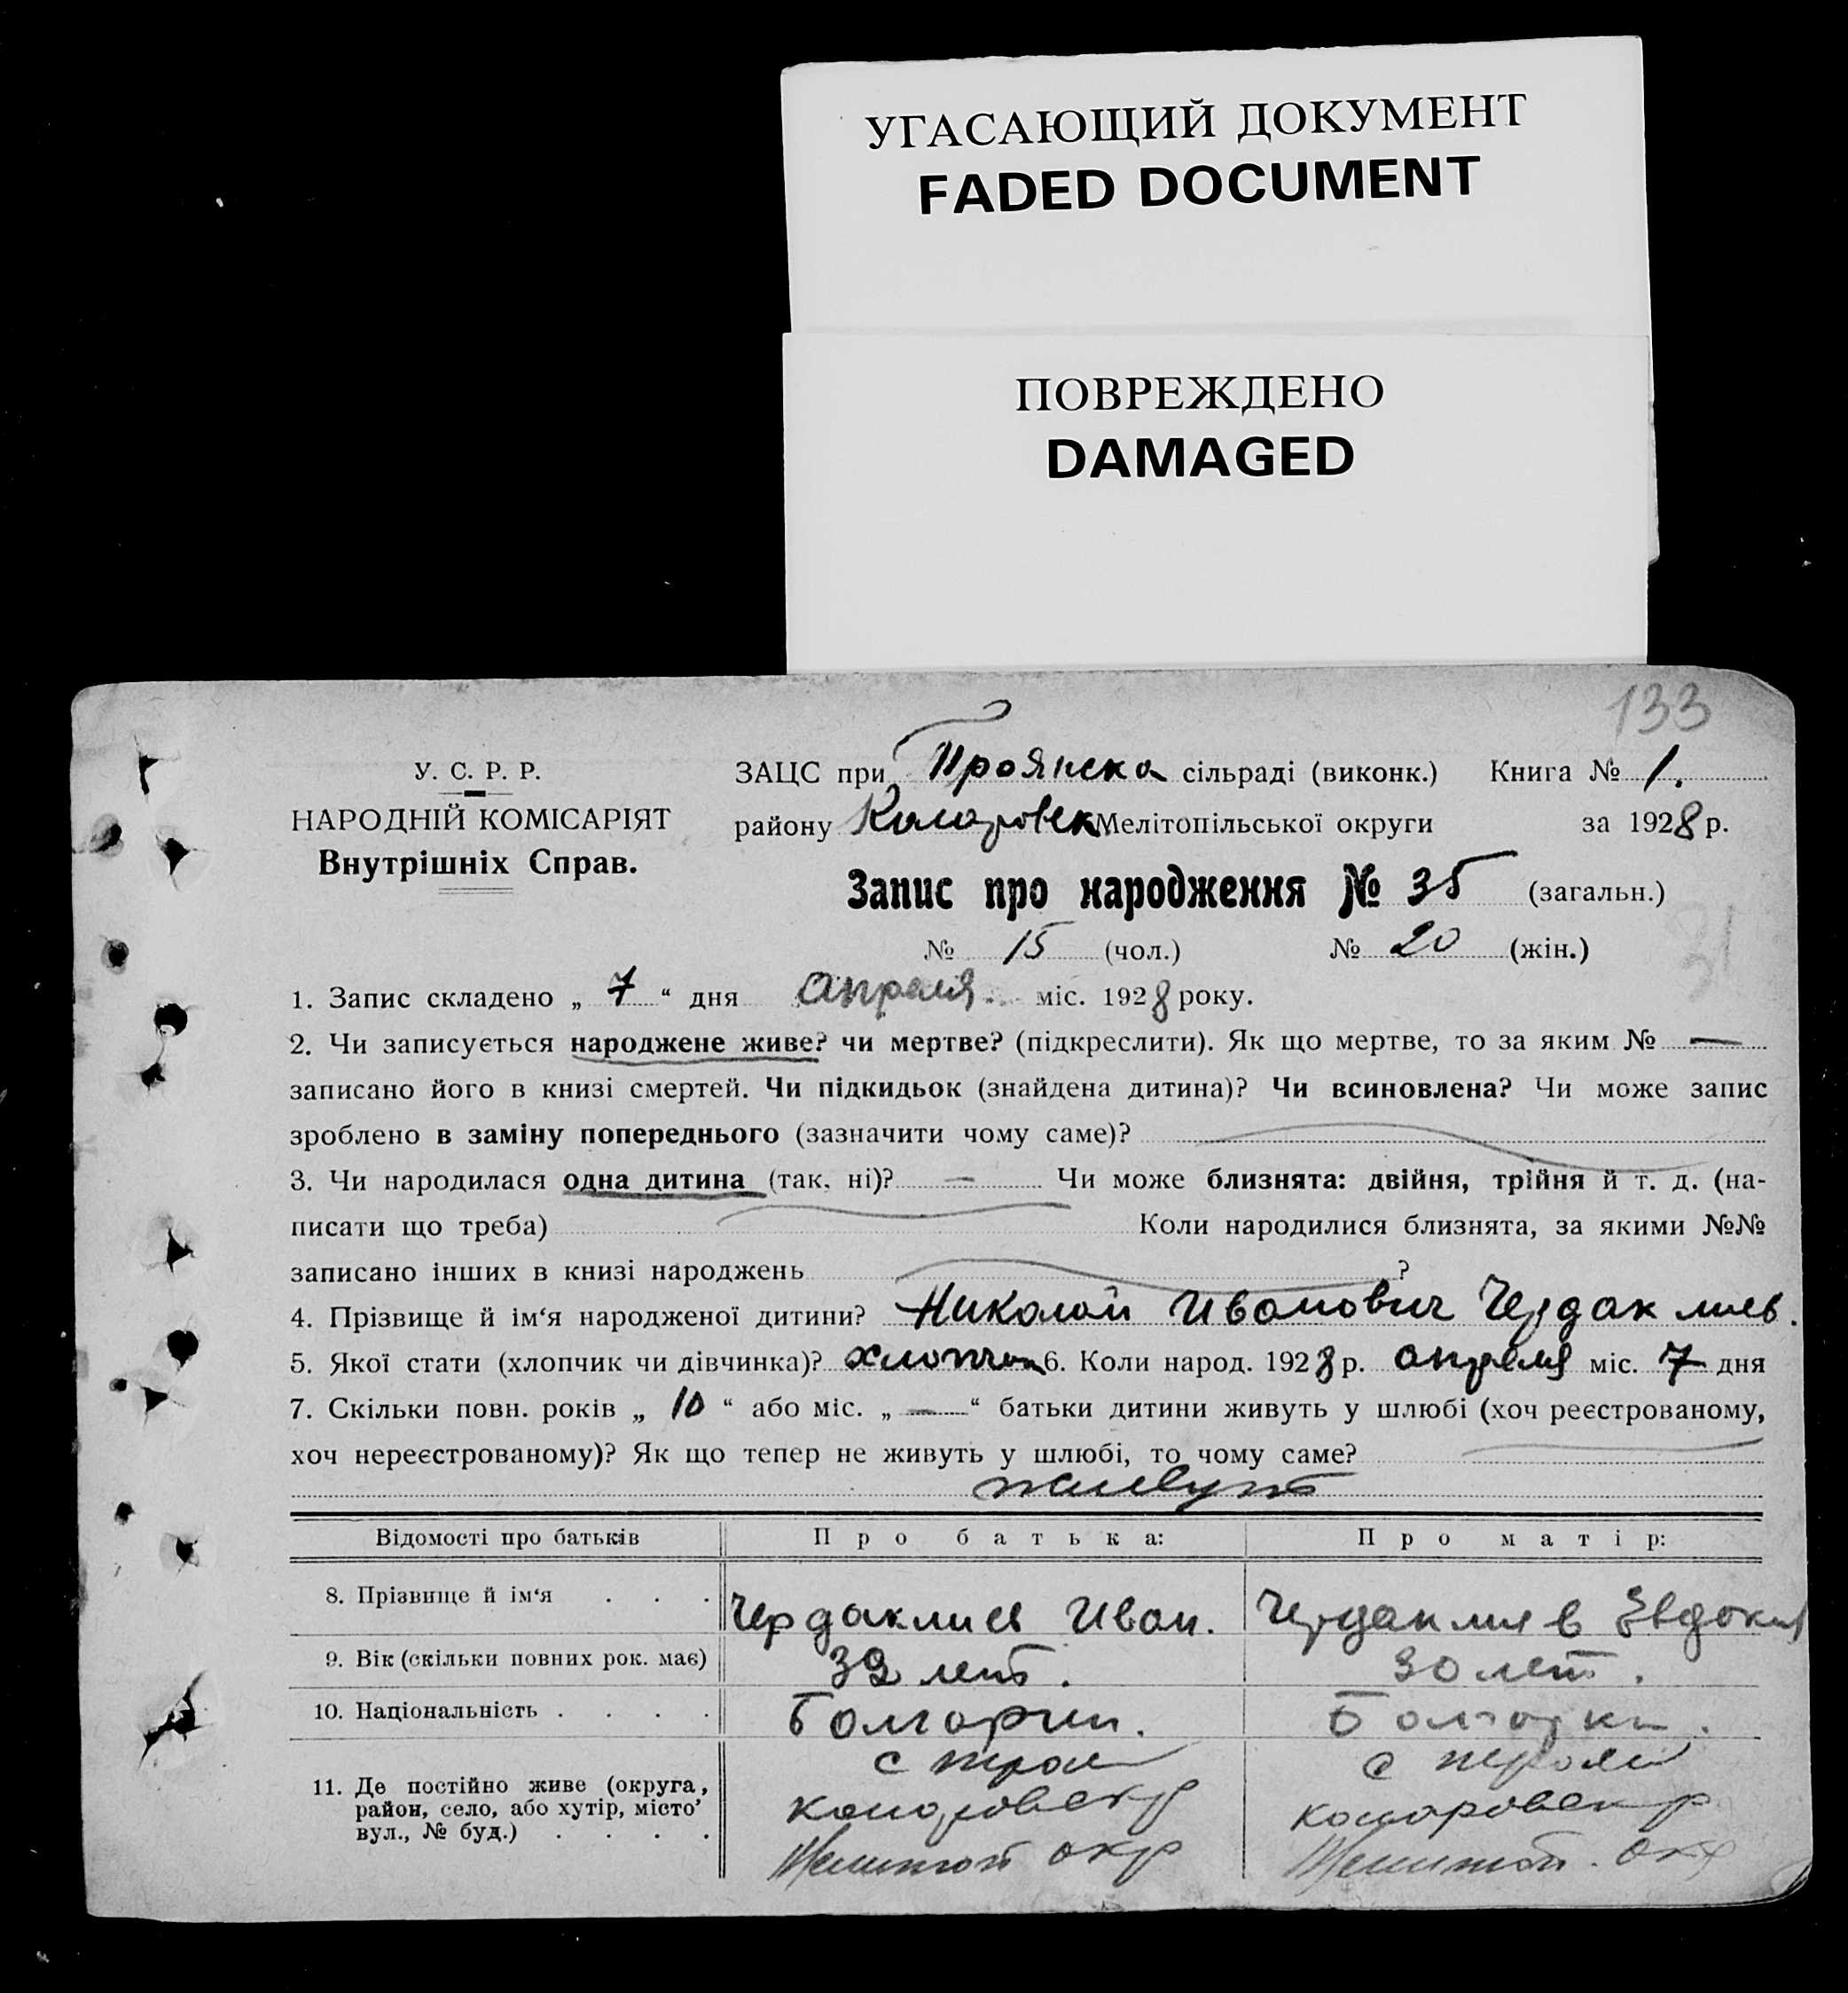 УГАСАЮЩИЙ ДОКУМЕНТ
FADED DOCUMENT
ПОВРЕЖДЕНО
DAMAGED
133
У. С. Р. Р.
НАРОДНІЙ КОМІСАРІЯТ
Внутрішніх Справ.
ЗАЦС при Троянска сільраді (виконк.) Книга № 1.
району Коларовск Мелітопільської округи за 1928 р.
Запис про народження № 35 (загальн.)
№ 15 (чол.) № 20 (жін.)
31
1. Запис складено „ 7 “ дня Апреля. міс. 1928 року.
2. Чи записується народжене живе? чи мертве? (підкреслити). Як що мертве, то за яким № —
записано його в книзі смертей. Чи підкидьок (знайдена дитина)? Чи всиновлена? Чи може запис
зроблено в заміну попереднього (зазначити чому саме)?
3. Чи народилася одна дитина (так, ні)? — Чи може близнята: двійня, трійня й т. д. (на-
писати що треба) Коли народилися близнята, за якими №№
записано інших в книзі народжень ?
4. Прізвище й ім‘я народженої дитини? Николай Иванович Чердаклиев.
5. Якої стати (хлопчик чи дівчинка)? хлопчик 6. Коли народ. 1928 р. апреля міс. 7 дня
7. Скільки повн. років „ 10 “ або міс. „ — “ батьки дитини живуть у шлюбі (хоч реєстрованому,
хоч нереєстрованому)? Як що тепер не живуть у шлюбі, то чому саме?
живут
Відомості про батьків Про батька: Про матір:
8. Прізвище й ім‘я . . . Чердаклиев Иван. Чердаклиев Евдокия
9. Вік (скільки повних рок. має) 32 лет. 30 лет.
10. Національність . . . . Болгарин. Болгарка.
11. Де постійно живе (округа, район, село, або хутір, місто’ вул., № буд.) . . . .
с троян
коларовск р
Мелитоп окр
с троян
коларовск р
Мелитоп. окр